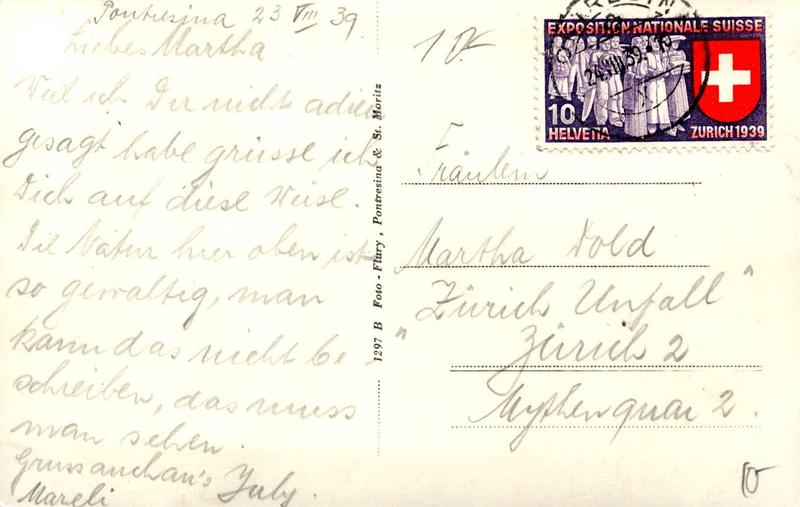 Pontresina 23 VIII 39
Liebes Martha
Weil ich Dir nicht adieu
gesagt habe grüsse ich
Dich auf diese Weise.
Die Natur hier oben ist
so gewaltig, man
kann das nicht be
schreiben, das muss
man sehen.
Gruss auch an's July.
Mareli
1297 B Foto-Flury, Pontresina & St. Moritz
EXPOSITION NATIONALE SUISSE
10
HELVETIA
ZURICH 1939
24.VIII.39
Fräulein
Martha Dold
"Zürich Unfall"
Zürich 2
Mythenquai 2.